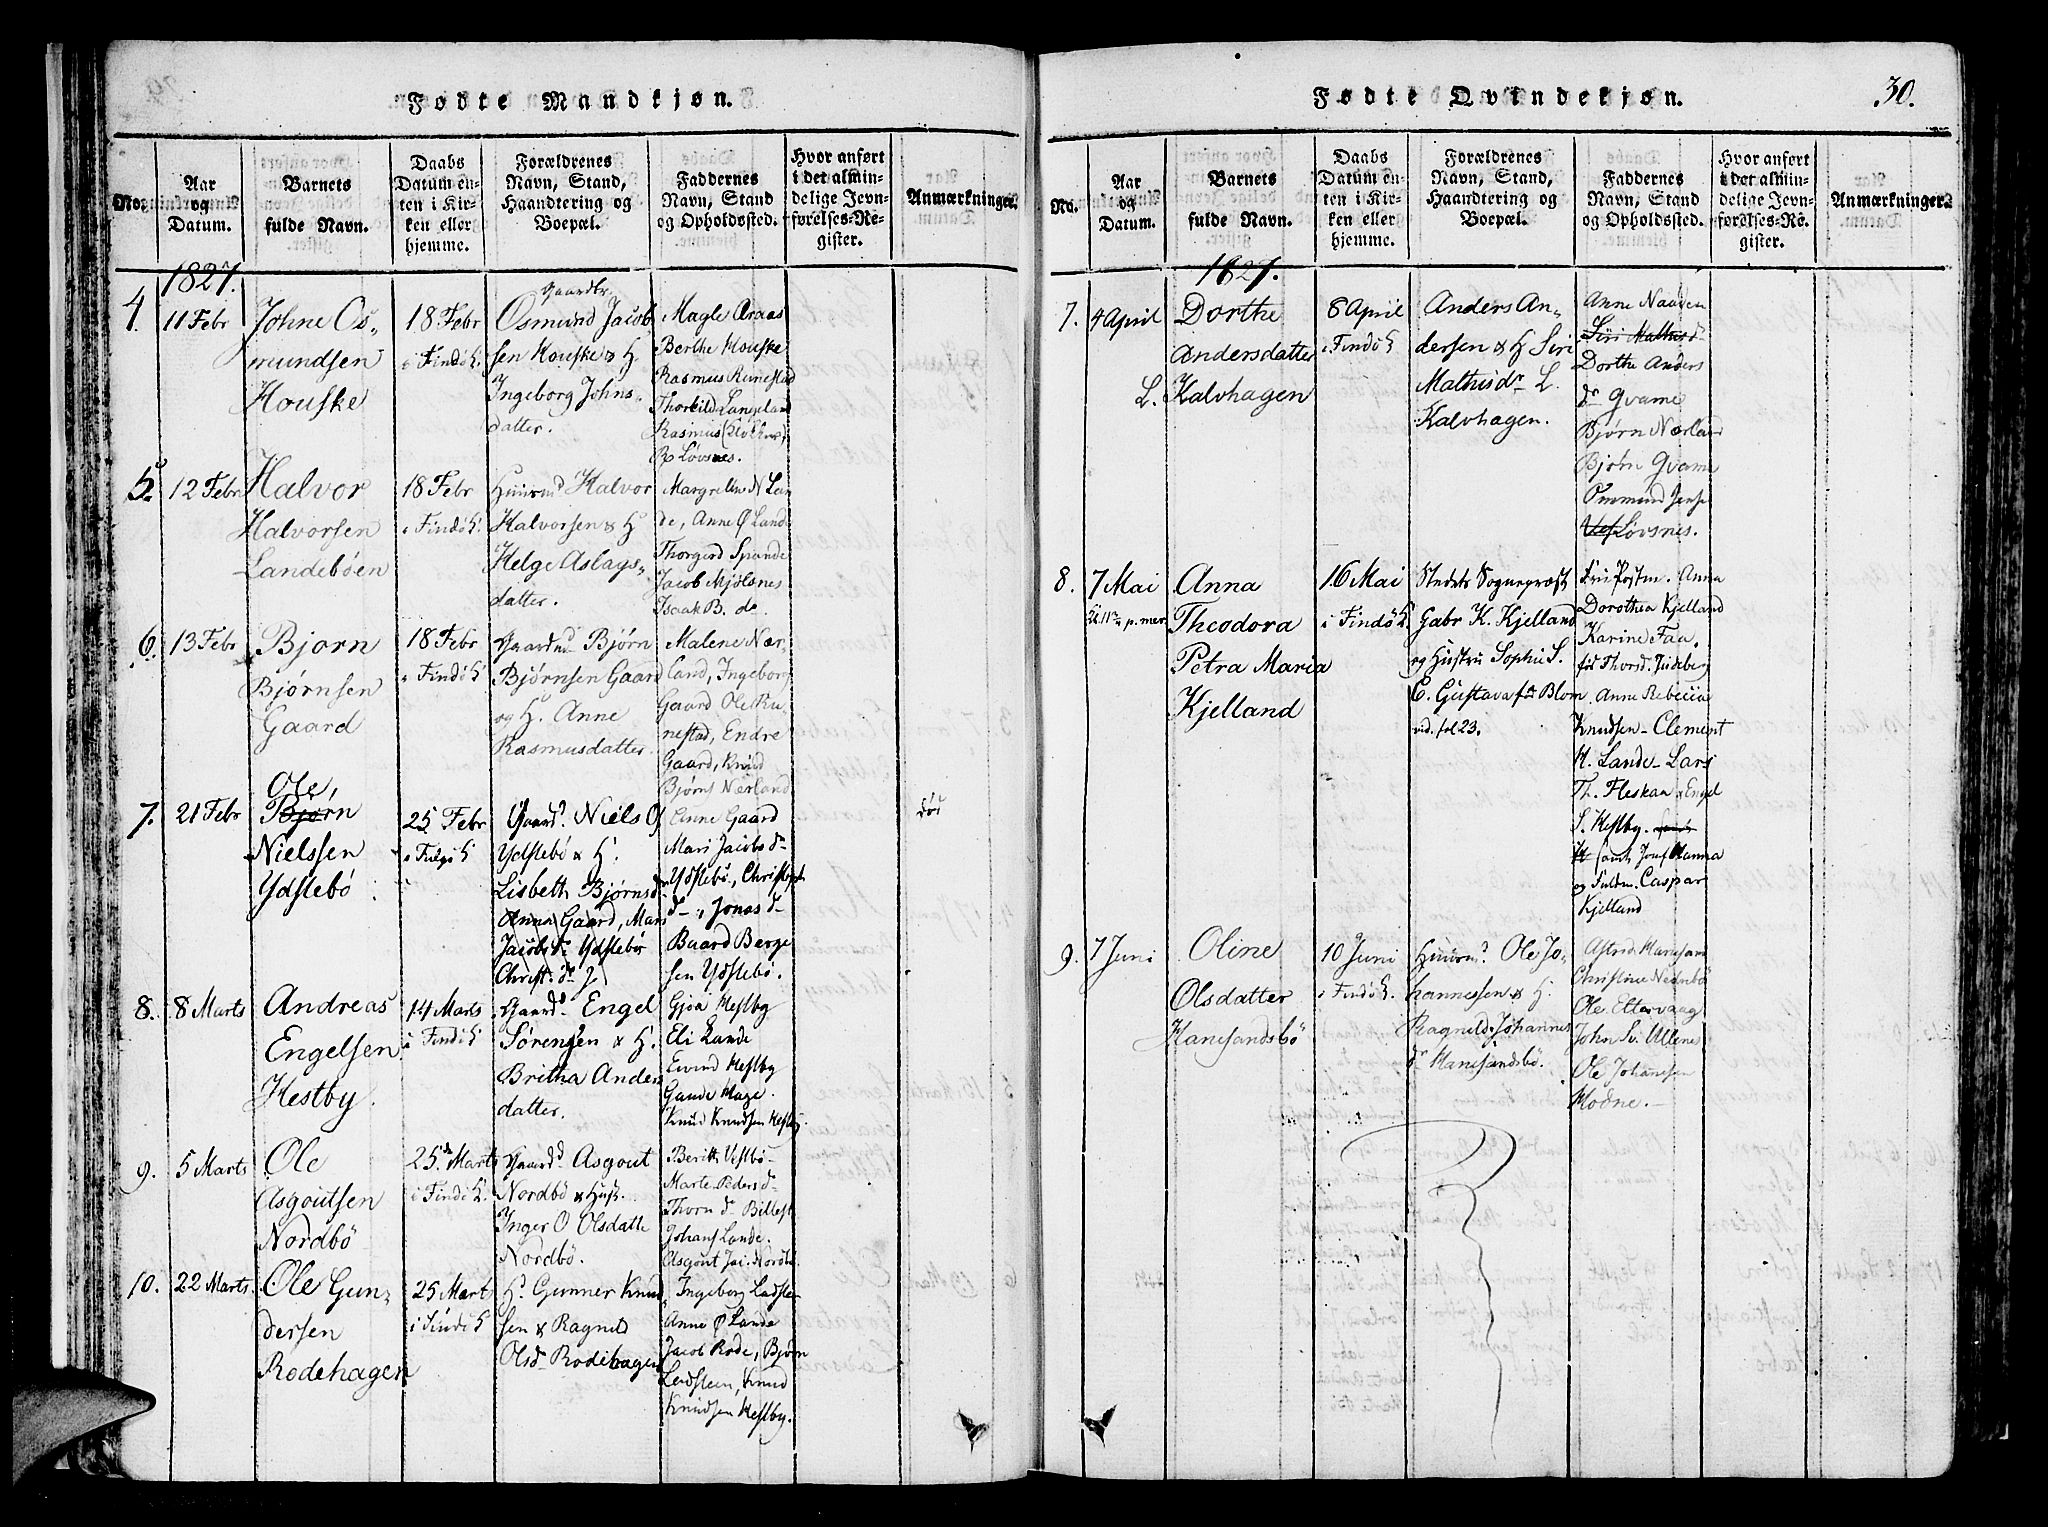 Fødte Mandkjøn.
No.
Aar
og
Datum.
Barnets
fulde Navn.
Daabs
Datum en-
ten i Kir-
ken eller
hjemme.
Forældrenes
Navn, Stand,
Haandtering og
Boepæl.
Faddernes
Navn, Stand
og Opholdssted.
Hvor anført
i det almin-
delige Jevn-
førelses-Re-
gister.
Anmærkninger.
1827.
4.
11 Febr
Johne Os-
mundsen
Houske
18 Febr
i Findö K.
Gaardbr.
Osmund Jacob
sen Houske & H.
Ingeborg Johns-
datter.
Magle Araas
Berthe Houske
Rasmus Runestad
Thorkild Langeland
Rasmus
R Løvsnes.
5.
12 Febr
Halvor
Halvorsen
Landebøen
18 Febr
i Findö K.
Huusmd Halvor
Halvorsen & H
Helge Aslags-
datter.
Margrethe N Lan
de, Anne Ø Lande
Thorgerd Spande
Jacob Mjölsnes
Isaak B. de.
6.
13 Febr
Bjørn
Bjørnsen
Gaard
18 Febr
i Findö K
Gaardmd Bjørn
Bjørnsen Gaard
og H. Anne
Rasmusdatter.
Malene Nær-
land, Ingeborg
Gaard Ole Ru
nestad, Endre
Gaard, Knud
Bjørns Nærland
7.
21 Febr
Ole,
Bjørn
Nielssen
Ydstebö
25 Febr
i K
Gaard. Niels O
Ydstebö & H.
Lisbeth Bjørnsd
Anna Gaard, Mari
Jacobsdr Ydstebör
Christ. dr J
Anne Gaard
Mari Jacobsdr
Ydstebö, Christoph
dr, Jonas dr
Baard Berge
sen Ydstebö.
død
8.
8 Marts
Andreas
Engelsen
Hestby.
14 Marts
i Findö K
Gaardd Engel
Sørensen & H.
Britha Anders
datter.
Gjøa Hestby
Eli Lande
Eivind Hestby
Gaude Hage.
Knud Knudsen Hestby
9.
5 Marts
Ole
Asgoutsen
Nordbö
25de Marts
i Findö K.
Gaardd Asgout
Nordbö & Hust.
Inger O Olsdatte
Nordbö.
Berith Vestbö
Marte Peders dr
Thorn dr Billest
Johans Lande.
Asgout Jac. Nordbö
10.
22 Marts
Ole Gun-
dersen
Rodehagen
25 Mart
i Findö K
H. Gunner Knud
sen & Ragnild
Olsdr Rodehagen
Ingeborg Ladsten
Anne Ø Lande
Jacob Rode, Bjørn
Ladsteen, Knud
Knudsen Hestby.
Fødte Qvindekjøn.
30.
No.
Aar
og
Datum.
Barnets
fulde Navn.
Daabs
Datum en-
ten i Kir-
ken eller
hjemme.
Forældrenes
Navn, Stand,
Haandtering og
Boepæl.
Faddernes
Navn, Stand
og Opholdssted.
Hvor anført
i det almin-
delige Jevn-
førelses-Re-
gister.
Anmærkninger.
1827.
7.
4 April
Dorthe
Andersdatter
L. Kalvhagen
8 April
i Findö K
Anders An-
dersen & H Siri
Mathisdr L.
Kalvhagen.
Anne Naaden
Siri Mathisdr
Dorthe Anders
dr Gvame
Bjørn Nærland
Bjørn Gvame
Ommund Jense
Løvsnes.
8.
7 Mai
p. mer.
Anna
Theodora
Petra Maria
Kjelland
16 Mai
i Findö K.
Stedets Sognepræst
Gabr K. Kjelland
og Hustru Sophie S.
C. Gustava fd Blom
vid. fol 23.
Anna
Dorothea Kjelland
Karine Faa
Anne Rebecca
Knudsen - Clement
H. Lande - Lars
Th. Fleskaa & Engel
S. Hestby.
samt Jomf Hanna
og Caspar
Kjelland
9.
7 Juni
Oline
Olsdatter
Hanesandsbö
10 Juni
i Findö K.
Huusmd Ole Jo-
hannessen & H.
Ragnild Johannes
dr Hanesandsbö.
Astrid Hanesand
Christine Nedrebö
Ole Eltervaag
John Sv. Ullenes
Ole Johansen
Hodne.